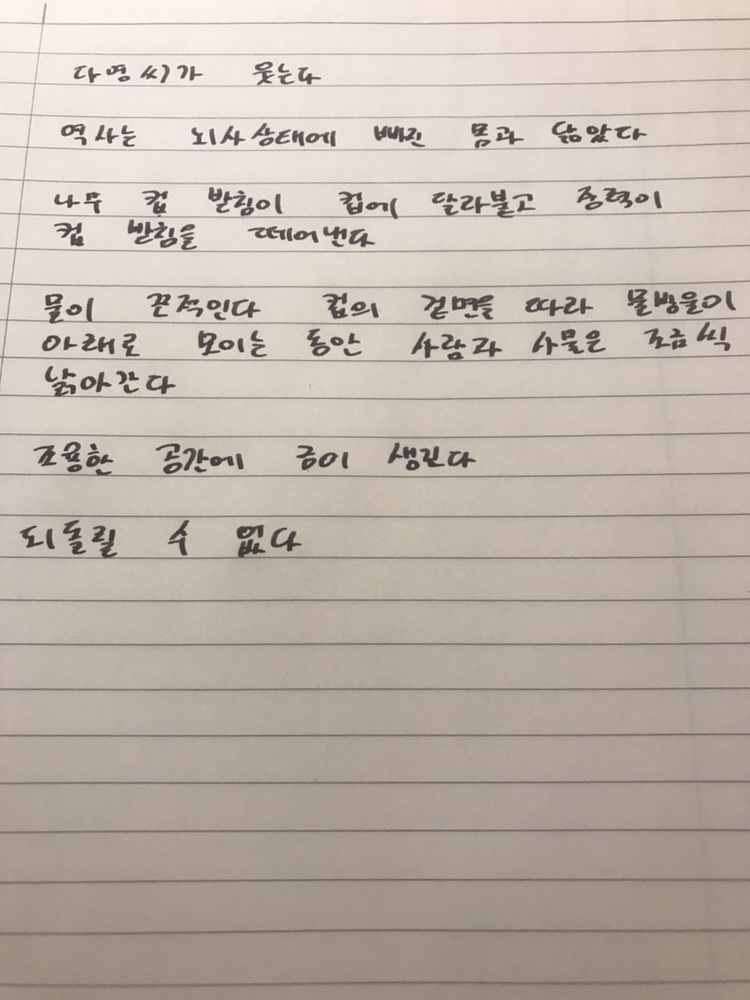 다영씨가 웃는다
역사는 뇌사상태에 빠진 몸과 닮았다
나무 컵 받침이 컵에 달라붙고 중력이
컵 받침을 떼어낸다
물이 끈적인다 컵의 겉면을 따라 물방울이
아래로 모이는 동안 사람과 사물은 조금씩
낡아간다
조용한 공간에 금이 생긴다
되돌릴 수 없다